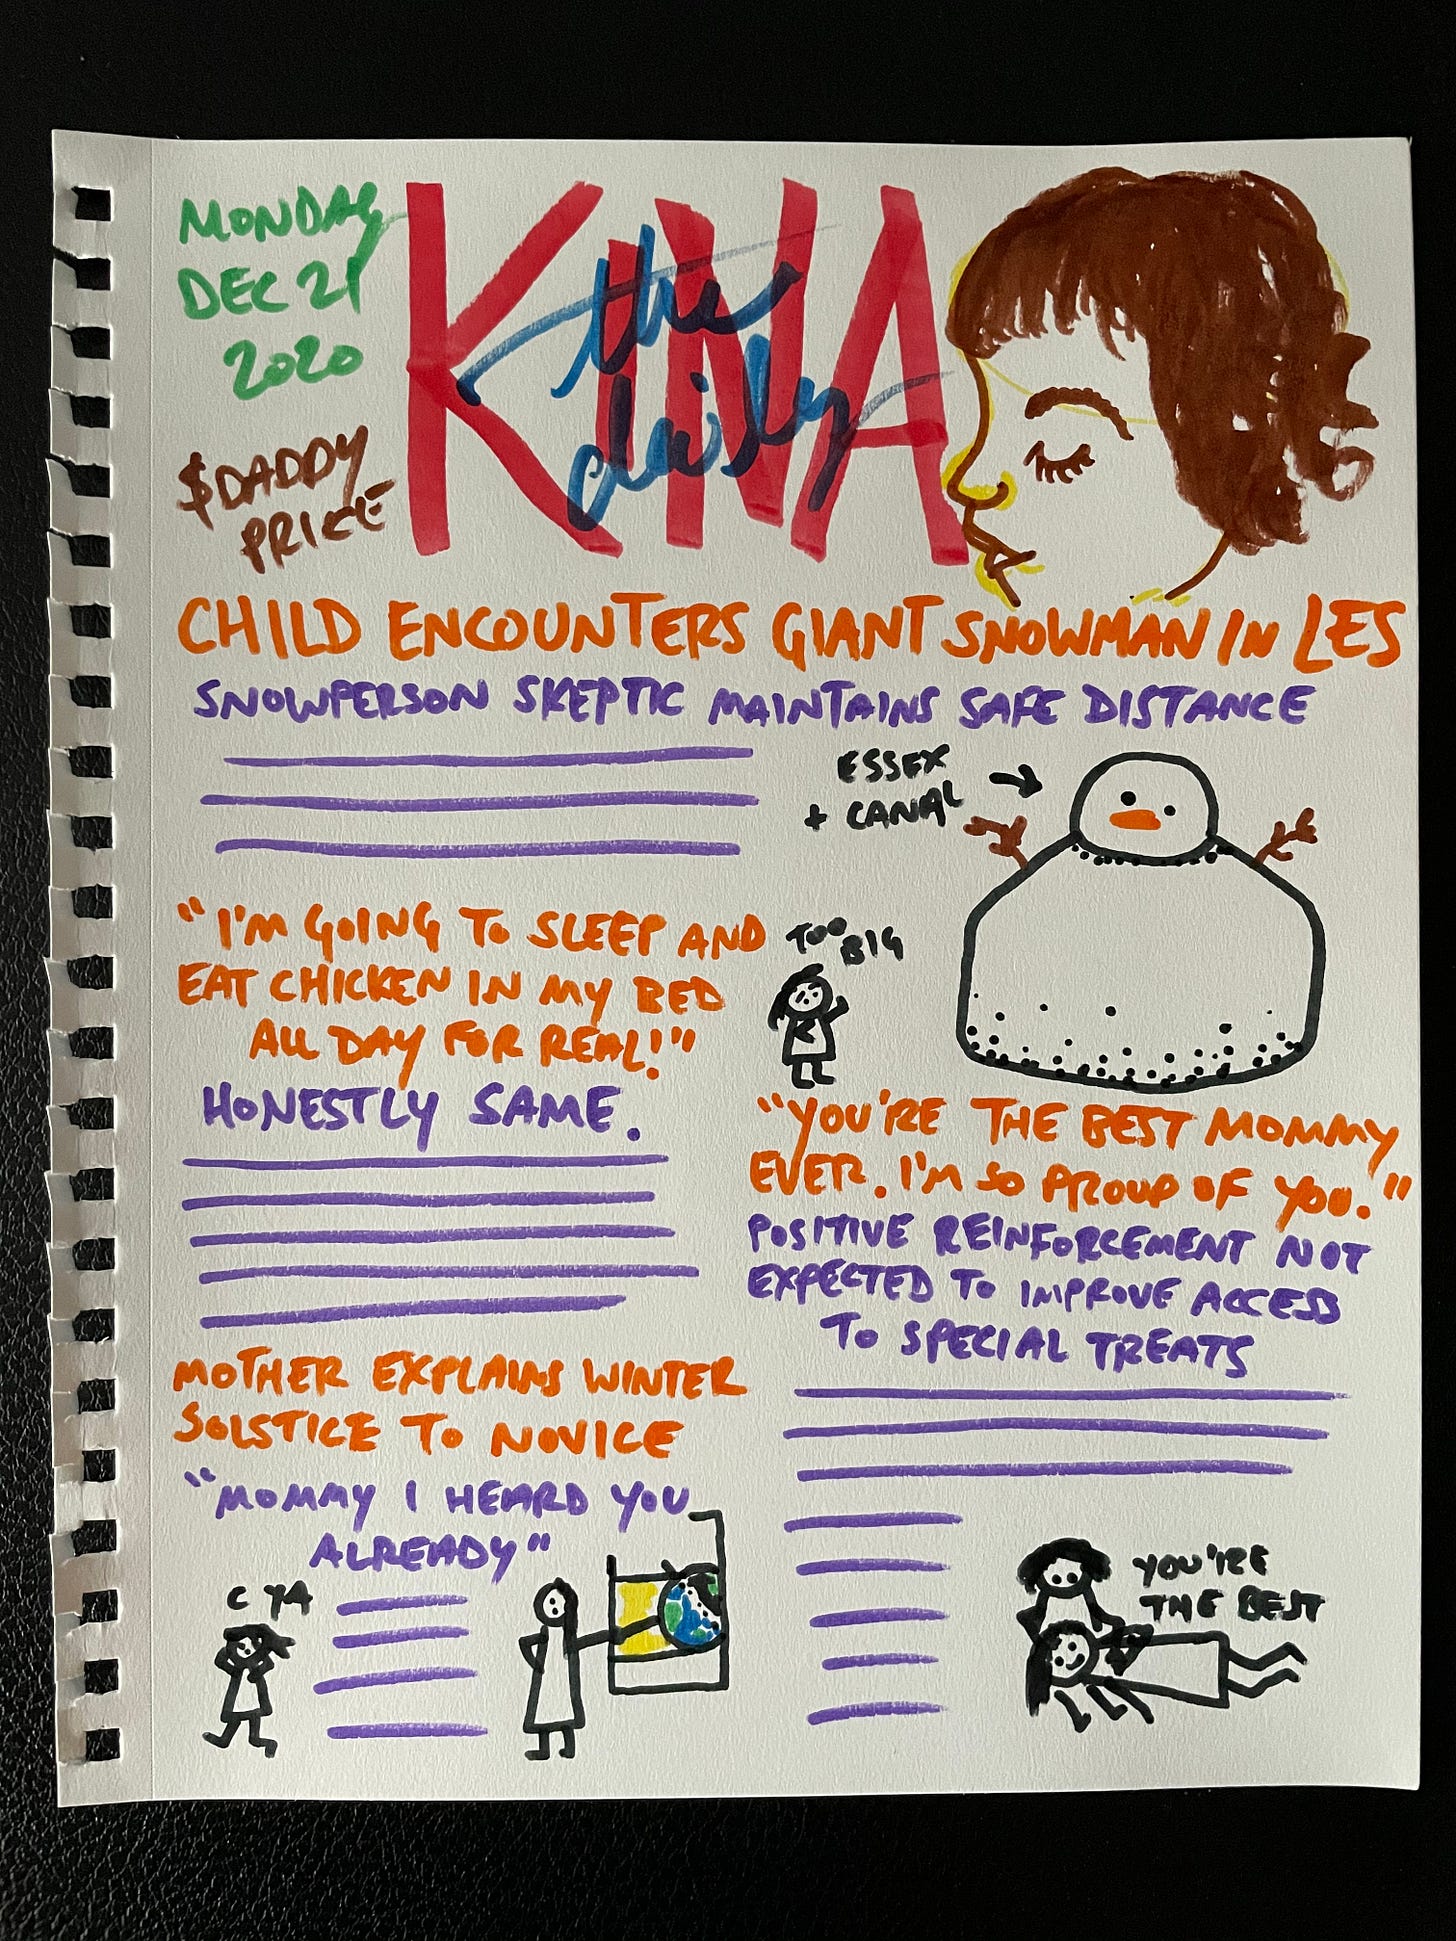 MONDAY
DEC 21
2020
$DADDY
PRICE
the
daily
KINA
CHILD ENCOUNTERS GIANT SNOWMAN IN LES
SNOWPERSON SKEPTIC MAINTAINS SAFE DISTANCE
ESSEX
+ CANAL
TOO
BIG
"I'M GOING TO SLEEP AND
EAT CHICKEN IN MY BED
ALL DAY FOR REAL!"
HONESTLY SAME.
"YOU'RE THE BEST MOMMY
EVER. I'M SO PROUD OF YOU."
POSITIVE REINFORCEMENT NOT
EXPECTED TO IMPROVE ACCESS
TO SPECIAL TREATS
MOTHER EXPLAINS WINTER
SOLSTICE TO NOVICE
"MOMMY I HEARD YOU
ALREADY"
C YA
YOU'RE
THE BEST